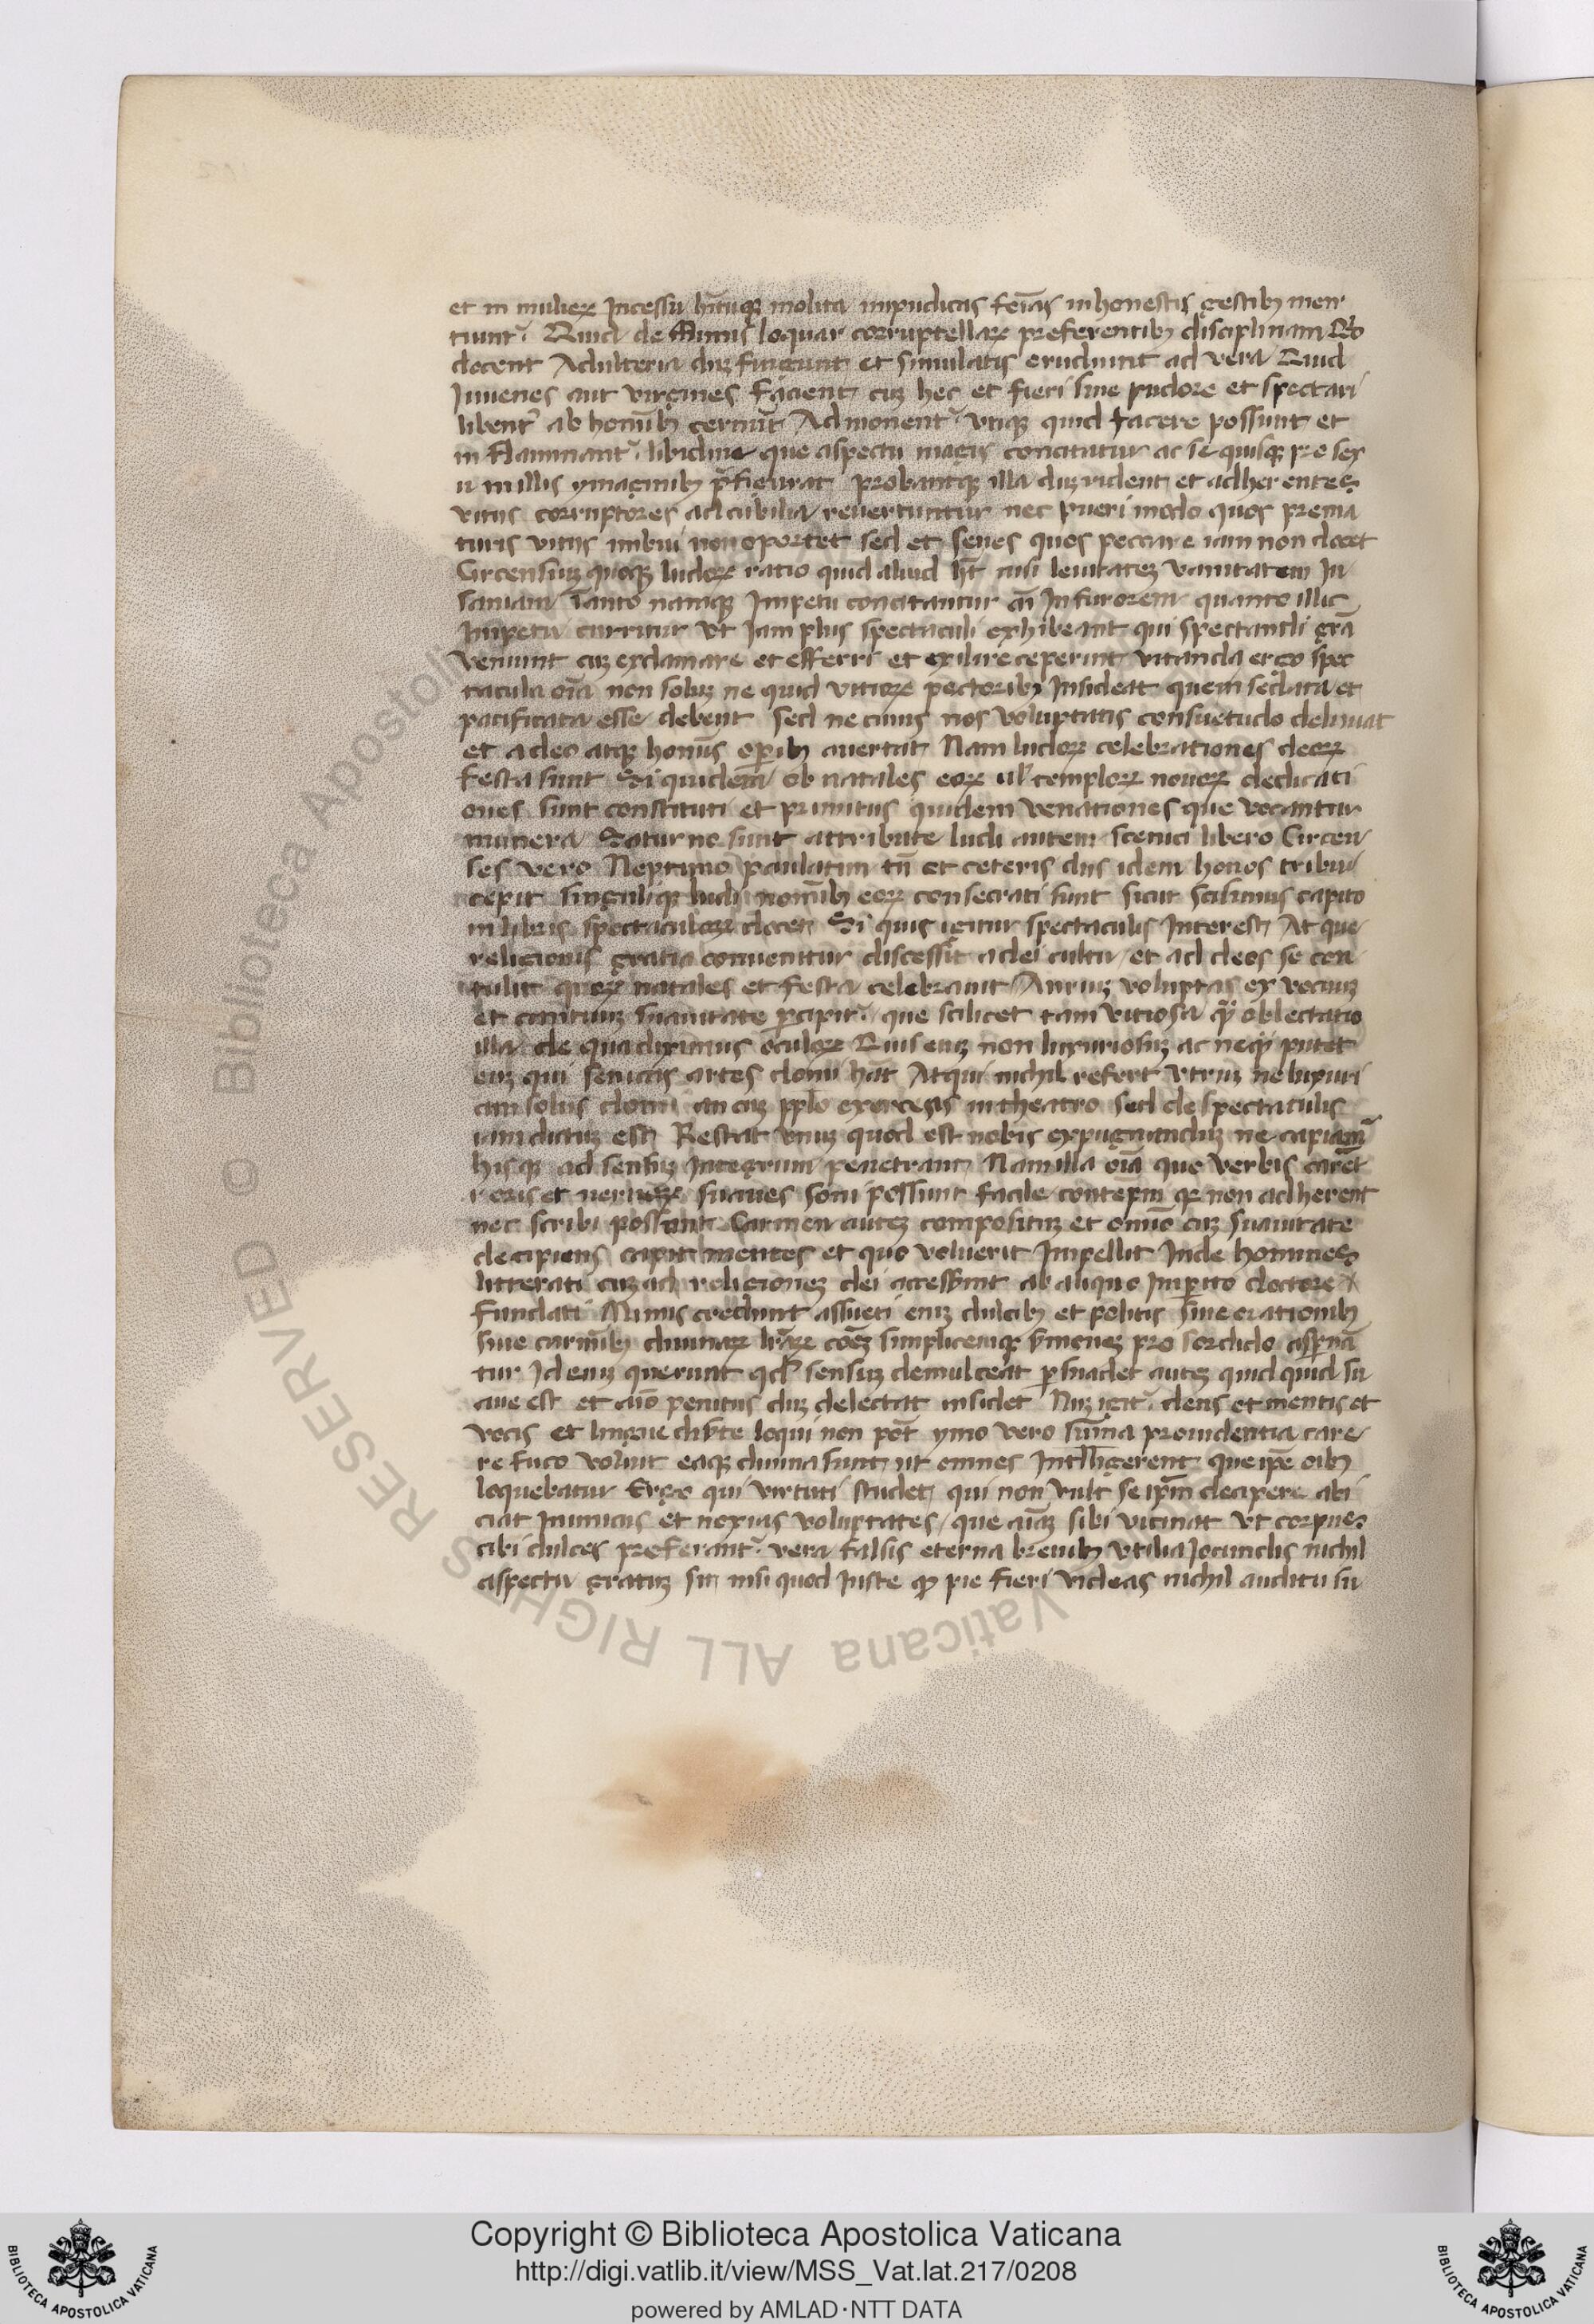 et in mulierꝝ Incessu hītuqꝫ molita impudicas feīas inhonestis gestibꝫ men
tiuntᷣ. Quid de Mimis loquar corruptellarꝝ preferentibꝫ disciplinam Qͦ
docent Adulteria dūꝫ fingunt et simulatis erudiunt ad vera Quid
Iuuenes aut virgines facient cuꝫ hec et fieri sine pudore et spectari
libentᷣ ab homībꝫ cernūt Admonentᷣ vtiqꝫ quid facere possunt et
in flammantᷣ libidine que aspectu magis concitatur ac se quisqꝫ pro sex
u in illis ymaginibꝫ p̄figurat probantqꝫ illa duꝫ rident et adherentes
vitiis corruptores ad cubilia reuertuntur nec pueri modo quos prema
turis vitiis imbui non oportet sed et senes quos peccare iam non decet
Circensiuꝫ quoqꝫ ludorꝝ ratio quid aliud hꝫt nisi leuitateꝫ vanitatem In
saniam Tanto namqꝫ Impetu concitantur aī Infurorem quanto illic
Impetu curritur vt Iam plus spectaculi exhibeant qui spectandi grā
veniunt cuꝫ exclamare et efferri et exilire ceperint vitanda ergo spec
tacula oīa non soluꝫ ne quid vitiorꝝ pectoribꝫ Insideat quem sedata et
pacificata esse debent sed ne cuius nos voluptatis consuetudo deliniat
et a deo atqꝫ honīs operibꝫ auertat Nam ludorꝝ celebrationes deorꝝ
festa sunt Si quidem ob natales eorꝝ ul templorꝝ nouorꝝ dedicati
ones sunt constituti et primitus quidem venationes que vocantur
munera Saturno sunt attribute ludi autem scenici libero Circen
ses vero Neptuno paulatim tn̄ et ceteris diis idem honos tribui
cepit singuliqꝫ ludi nomībꝫ eorꝝ consecrati sunt sicut Scisinius capito
in libris spectaculorꝝ docet Si quis igitur spectaculis Interest At que
religionis gratia conuenitur discessit a dei cultu et ad deos se con
tulit quorꝝ natales et festa celebrauit Auriuꝫ voluptas ex vocuꝫ
et cantuuꝫ suauitate ꝑcipitᷣ que scilicet tam vitiosa qͣ oblectatio
illa de qua diximus oculorꝝ Quis euꝫ non luxuriosuꝫ ac neqͣ putet
euꝫ qui senicas artes domi hāt Atqui nichil refert vtruꝫ ne luxuri
am solus domi an cuꝫ pplo exerceas in theatro sed de spectaculis
iam dictuꝫ est Restat vnuꝫ quod est nobis expugnanduꝫ ne capiamᷣ
hisqꝫ ad sensuꝫ Integrum penetrant Nam illa oīa que verbis carēt
suaues soni possunt facile contēpni qꝛ non adherent
nec scribi possunt Carmen auteꝫ compositū et oratio cuꝫ suauitate
decipiens capit mentes et quo voluerit Impellit Inde homines
litterati cuꝫ ad religioneꝫ dei accesserint ab aliquo Imperito doctore
fundati Minus credunt assueti enīꝫ dulcibꝫ et politis siue orationibꝫ
siue carmībꝫ diuinarꝝ lr̄arꝝ coēꝫ simplicemqꝫ sermoneꝫ pro sordido aspernā
tur Id enīꝫ querunt qd̓ sensuꝫ demulceat ꝑsuadet auteꝫ quid quid su
aue est et aīo penitus duꝫ delectat insidet Nuꝫ igitᷣ deus et mentis et
vocis et lingue diserte loqui non pōt ymo vero sum̄a prouidentia care
re fuco voluit eaqꝫ diuina sunt ut omnes Intelligerent que ipē oībꝫ
loquebatur Ergo qui virtuti studet qui non vult se ip̄m decipere abi
ciat Inimicas et noxias voluptates que aīaꝫ sibi vitinat vt corpus
cibi dulces preferantᷣ vera falsis eterna breuibꝫ vtilia Iocundis nichil
aspectu gratuꝫ sit nisi quod Iuste qꝫ pie fieri videas nichil auditu su
© Biblioteca Apostolica Vaticana ALL RIGHTS RESERVED
Copyright © Biblioteca Apostolica Vaticana
http://digi.vatlib.it/view/MSS_Vat.lat.217/0208
powered by AMLAD·NTT DATA
BIBLIOTECA APOSTOLICA VATICANA
BIBLIOTECA APOSTOLICA VATICANA